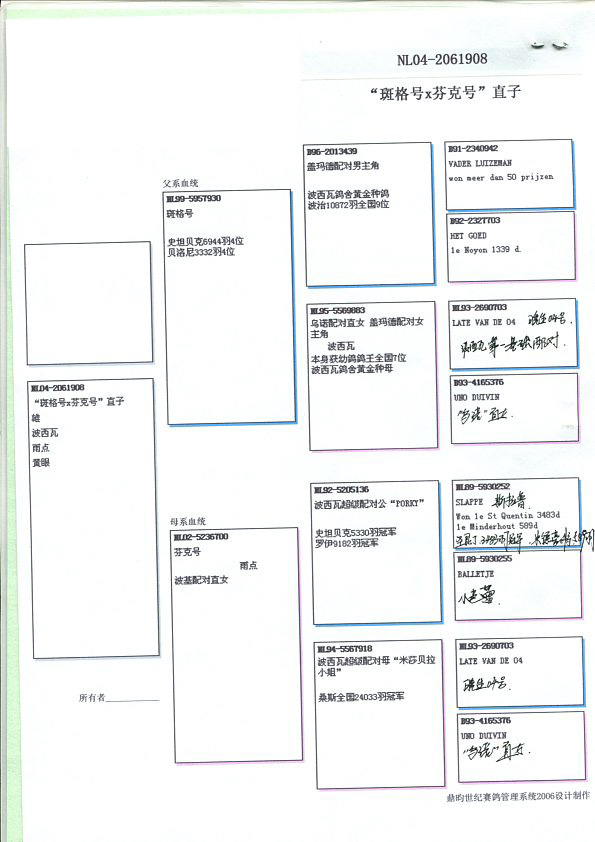 NL04-2061908
“斑格号x芬克号”直子
父系血统
NL99-5957930
斑格号
史坦贝克6944羽4位
贝洛尼3332羽4位
NL04-2061908
“斑格号x芬克号”直子
雄
波西瓦
雨点
黄眼
母系血统
NL02-5236700
芬克号
雨点
波基配对直女
所有者
B96-2013439
盖玛德配对男主角
波西瓦鸽舍黄金种鸽
波治10872羽全国9位
NL95-5569883
乌诺配对直女 盖玛德配对女
主角
波西瓦
本身获幼鸽鸽王全国7位
波西瓦鸽舍黄金种母
NL92-5205136
波西瓦超级配对公“PORKY”
史坦贝克5330羽冠军
罗伊9182羽冠军
NL94-5567918
波西瓦超级配对母“米莎贝拉
小姐”
桑斯全国24033羽冠军
B91-2340942
VADER LUIZEMAN
won meer dan 50 prijzen
B92-2327703
HET GOED
1e Noyon 1339 d.
NL93-2690703
LATE VAN DE 04 晚生04号.
B93-4165376
UNO DUIVIN
直女.
NL89-5930252
SLAPPE 斯拉普
Won 1e St Quentin 3483d
1e Minderhout 589d
NL89-5930255
BALLETJE
小芭蕾.
NL93-2690703
LATE VAN DE 04
晚生04号.
B93-4165376
UNO DUIVIN
直女.
鼎昀世纪赛鸽管理系统2006设计制作